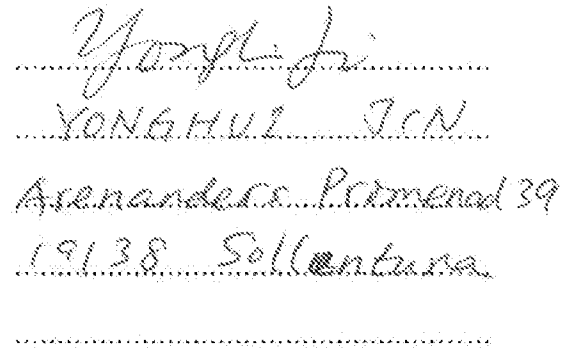 YONGHUI JIN
Arenanders Promenad 39
19138 Sollentuna